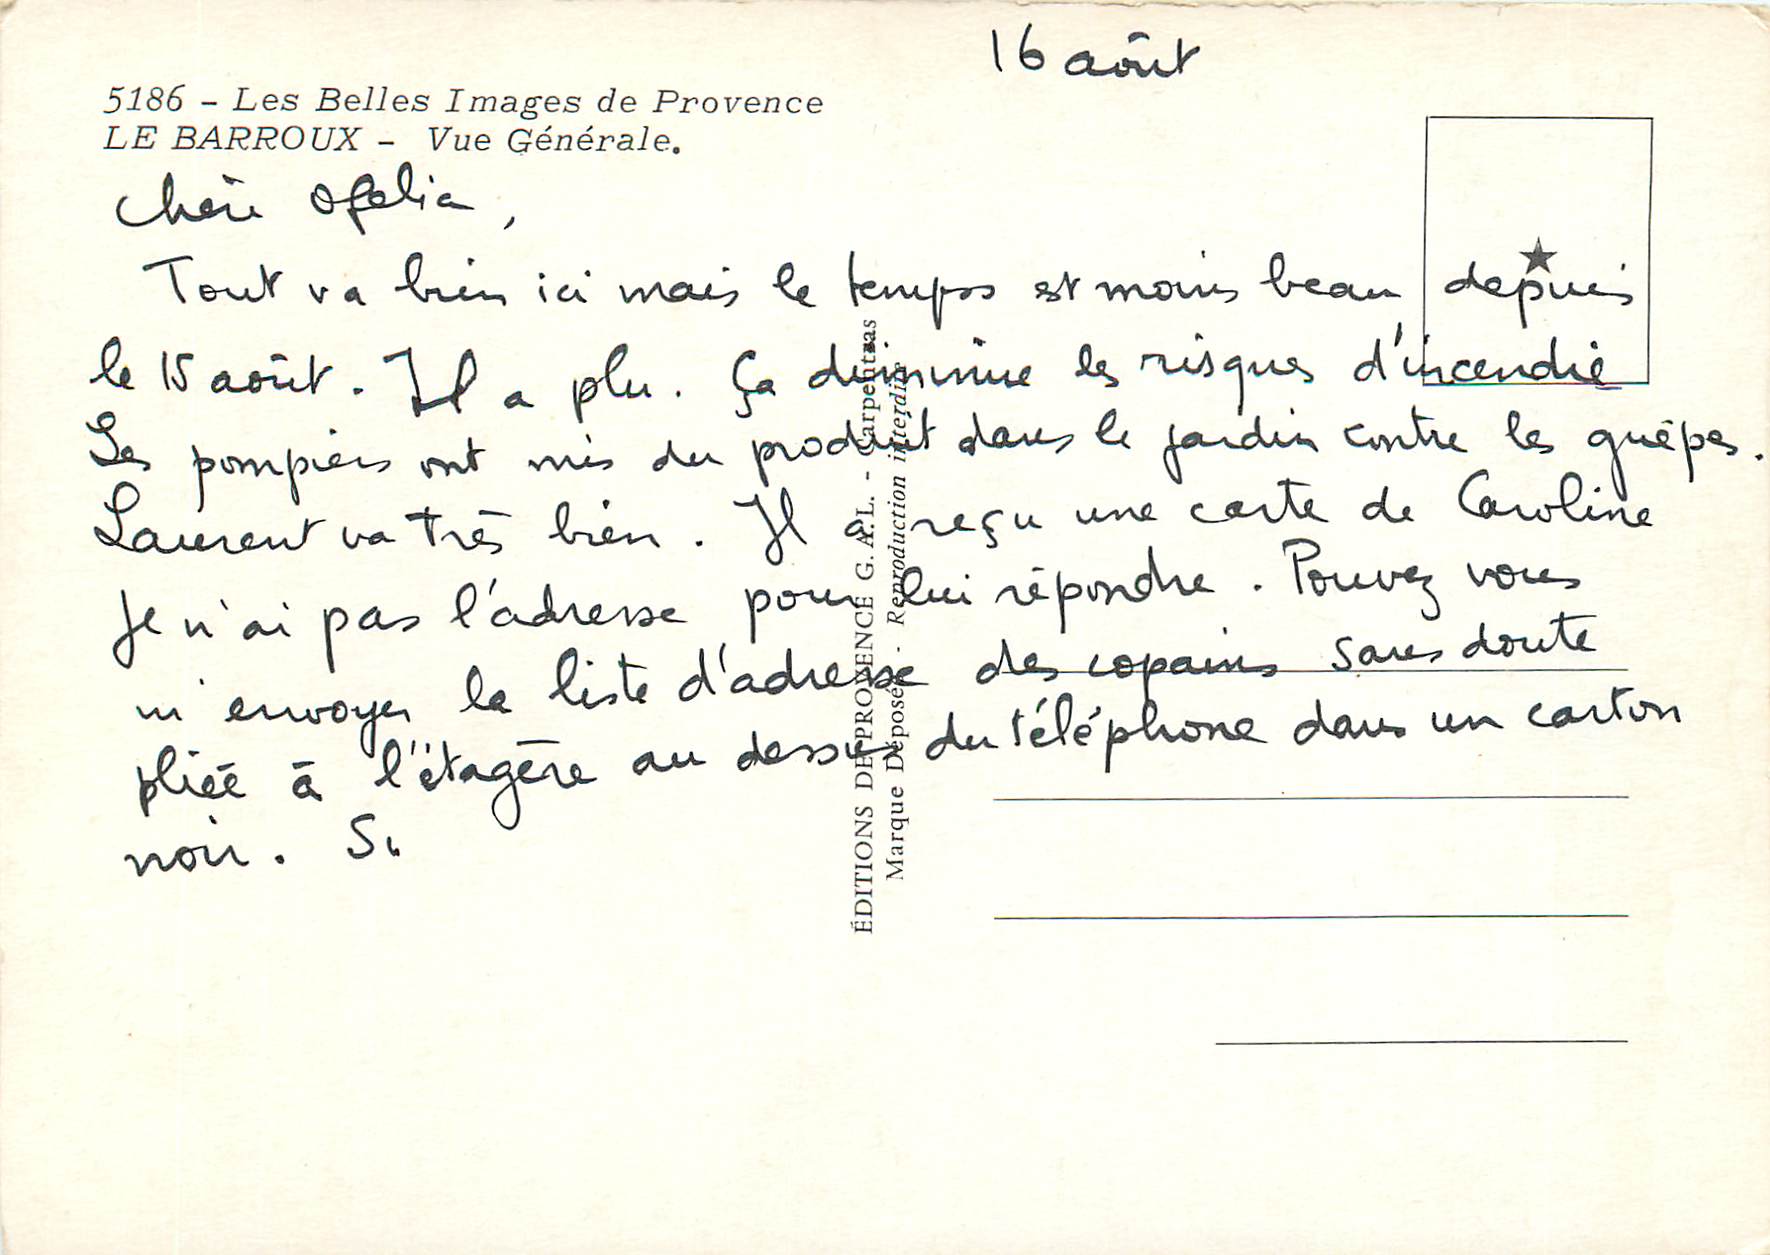 16 août
5186 - Les Belles Images de Provence
LE BARROUX - Vue Générale.
Chère Ofelia,
Tout va bien ici mais le temps est moins beau depuis
le 15 août. Il a plu. Ça diminue les risques d'incendie
Les pompiers ont mis du produit dans le jardin contre les guêpes.
Laurent va très bien. Il a reçu une carte de Caroline
Je n'ai pas l'adresse pour lui répondre. Pouvez vous
m'envoyer la liste d'adresse des copains sans doute
pliée à l'étagère au dessus du téléphone dans un carton
noir. Si
ÉDITIONS DE PROVENCE G.A.L. - Carpentras
Marque Déposée - Reproduction interdite